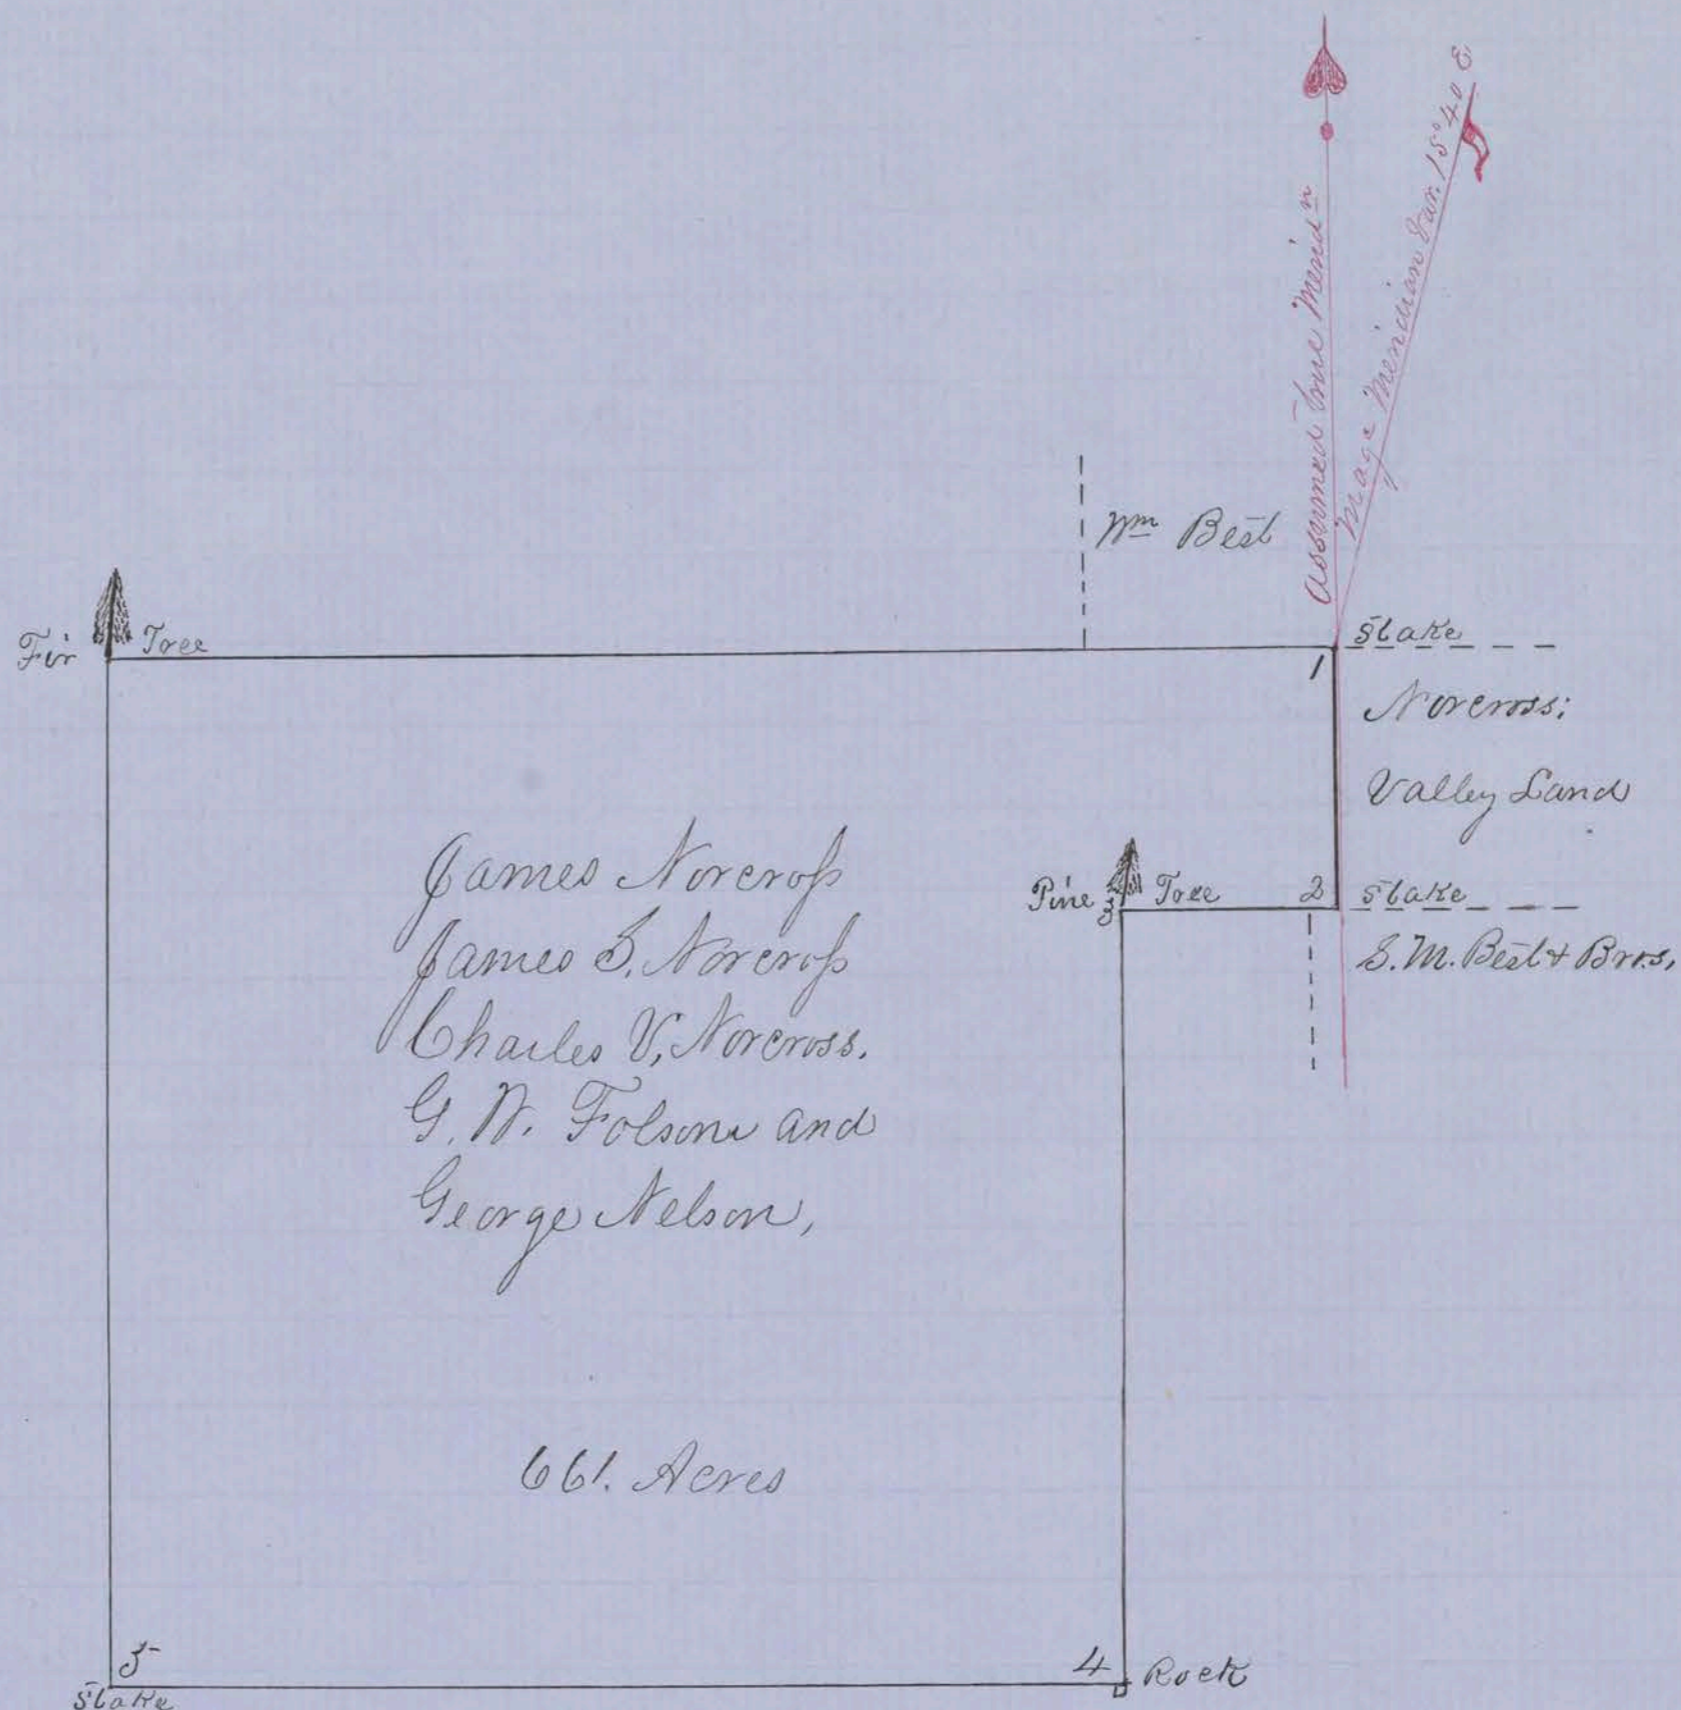 Assumed True Merid<sup>n</sup>
Mag<sup>c</sup> Meridian Var. 15° 40 E
Wm Best
Fir Tree
Stake
1
Norcross;
Valley Land
Pine Tree
3
2 Stake
S. M. Best & Bros,
James Norcross
James S. Norcross
Charles V. Norcross.
G. W. Folsom and
George Nelson,
661. Acres
5
Stake
4 Rock